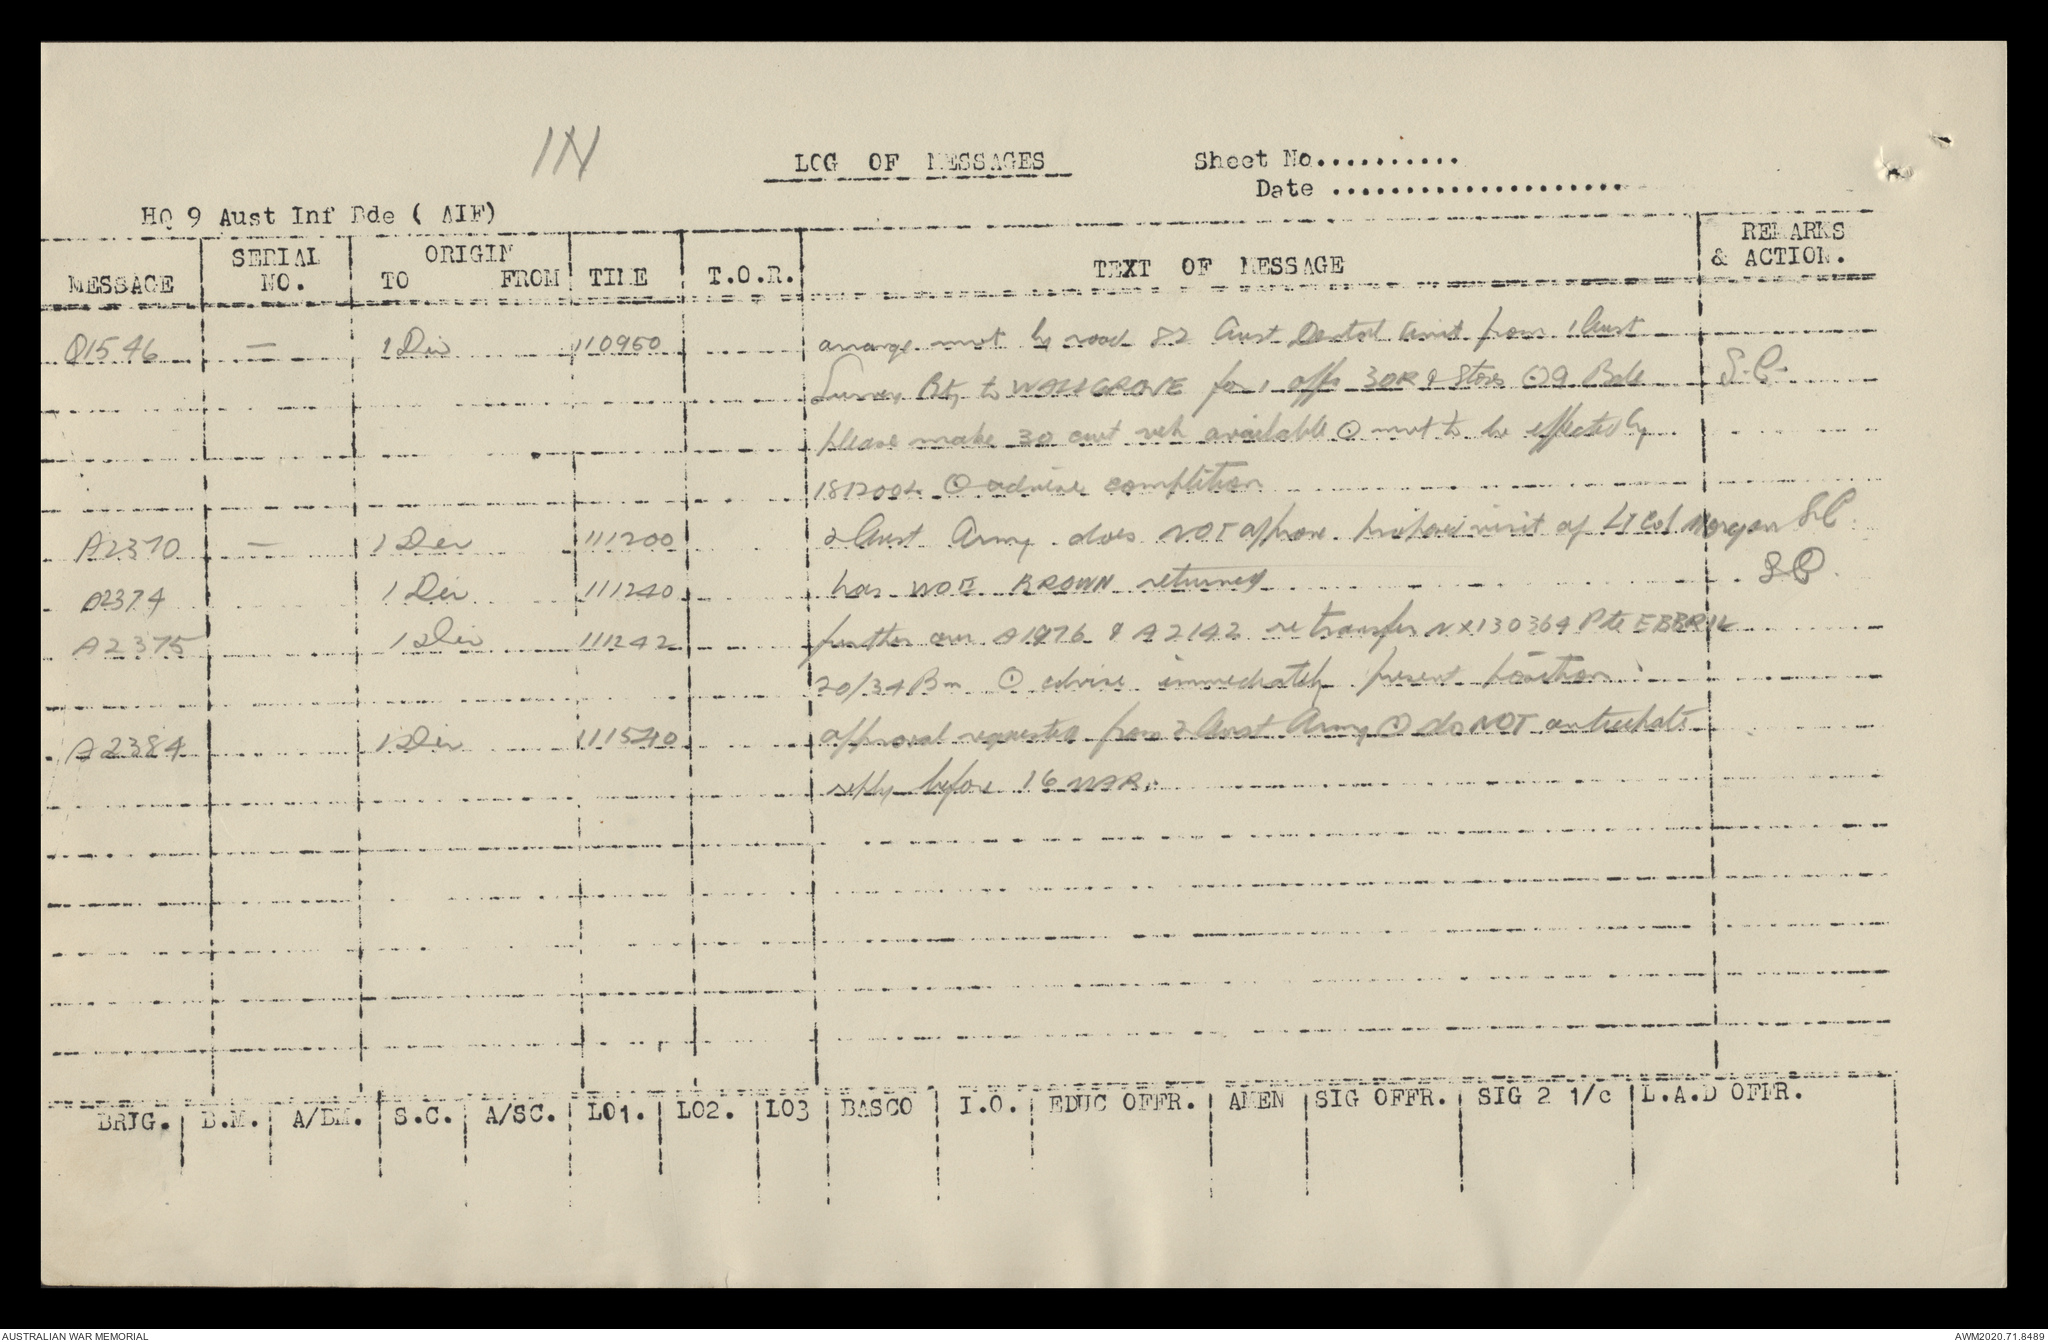 IN
LOG OF MESSAGES
Sheet No..........
Date ....................
HQ 9 Aust Inf Bde ( AIF)
MESSAGE SERIAL NO. ORIGIN TO FROM TIME T.O.R. TEXT OF MESSAGE REMARKS & ACTION.
Q1546 — 1 Div 110950 arrange mvt by road 82 Aust Dental Unit from 1 Aust
Survey Bty to WALLGROVE for 1 offr 3OR & Stores ⊙ 9 Bde S.C.
please make 30 cwt veh available ⊙ mvt to be effected by
181200L ⊙ advise completion
A2370 — 1 Div 111200 2 Aust Army does NOT approve visit of Lt Col Morgan SC.
A2374 1 Div 111240 has WOII BROWN returned SC.
A2375 1 Div 111242 further our A1976 & A2142 re transfer NX130364 Pte
20/34 Bn ⊙ advise immediately present position
A2384 1 Div 111540 approval requested from 2 Aust Army ⊙ do NOT anticipate
reply before 16 MAR.
BRIG. B.M. A/BM. S.C. A/SC. LO1. LO2. LO3 BASCO I.O. EDUC OFFR. AMEN SIG OFFR. SIG 2 1/c L.A.D OFFR.
AUSTRALIAN WAR MEMORIAL
AWM2020.71.8489